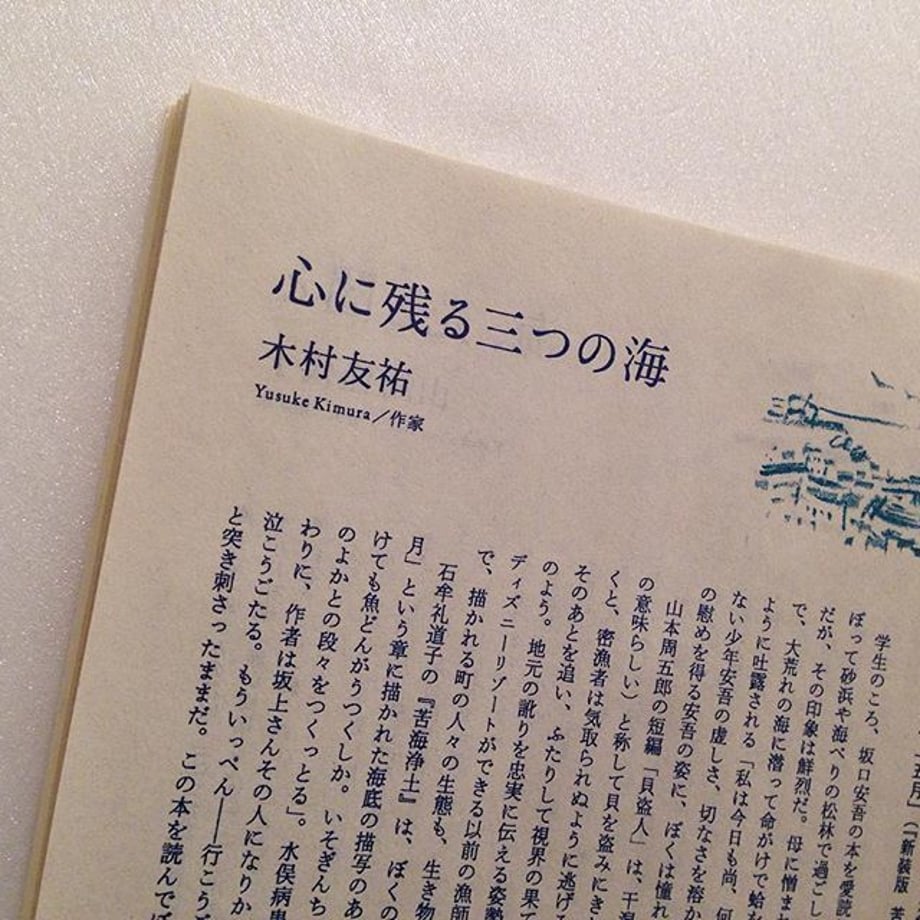 心に残る三つの海
木村友祐
Yusuke Kimura／作家
五月』（『新装版　苦
学生のころ、坂口安吾の本を愛読
ぼって砂浜や海べりの松林で過ごし
だが、その印象は鮮烈だ。母に憎ま
で、大荒れの海に潜って命がけで蛤を
ように吐露される「私は今日も尚、何
ない少年安吾の虚しさ、切なさを溶か
の慰めを得る安吾の姿に、ぼくは憧れ
山本周五郎の短編「貝盗人」は、干潟
の意味らしい）と称して貝を盗みにき
くと、密漁者は気取られぬように逃げる
そのあとを追い、ふたりして視界の果て
のよう。地元の訛りを忠実に伝える姿勢
ディズニーリゾートができる以前の漁師
で、描かれる町の人々の生態も、生き物
石牟礼道子の『苦海浄土』は、ぼくの
月」という章に描かれた海底の描写のあ
けても魚どんがうつくしか。いそぎんち
のよかとの段々をつくっとる」。水俣病患
わりに、作者は坂上さんその人になりか
泣こうごたる。もういっぺん――行こうご
と突き刺さったままだ。この本を読んでぼ